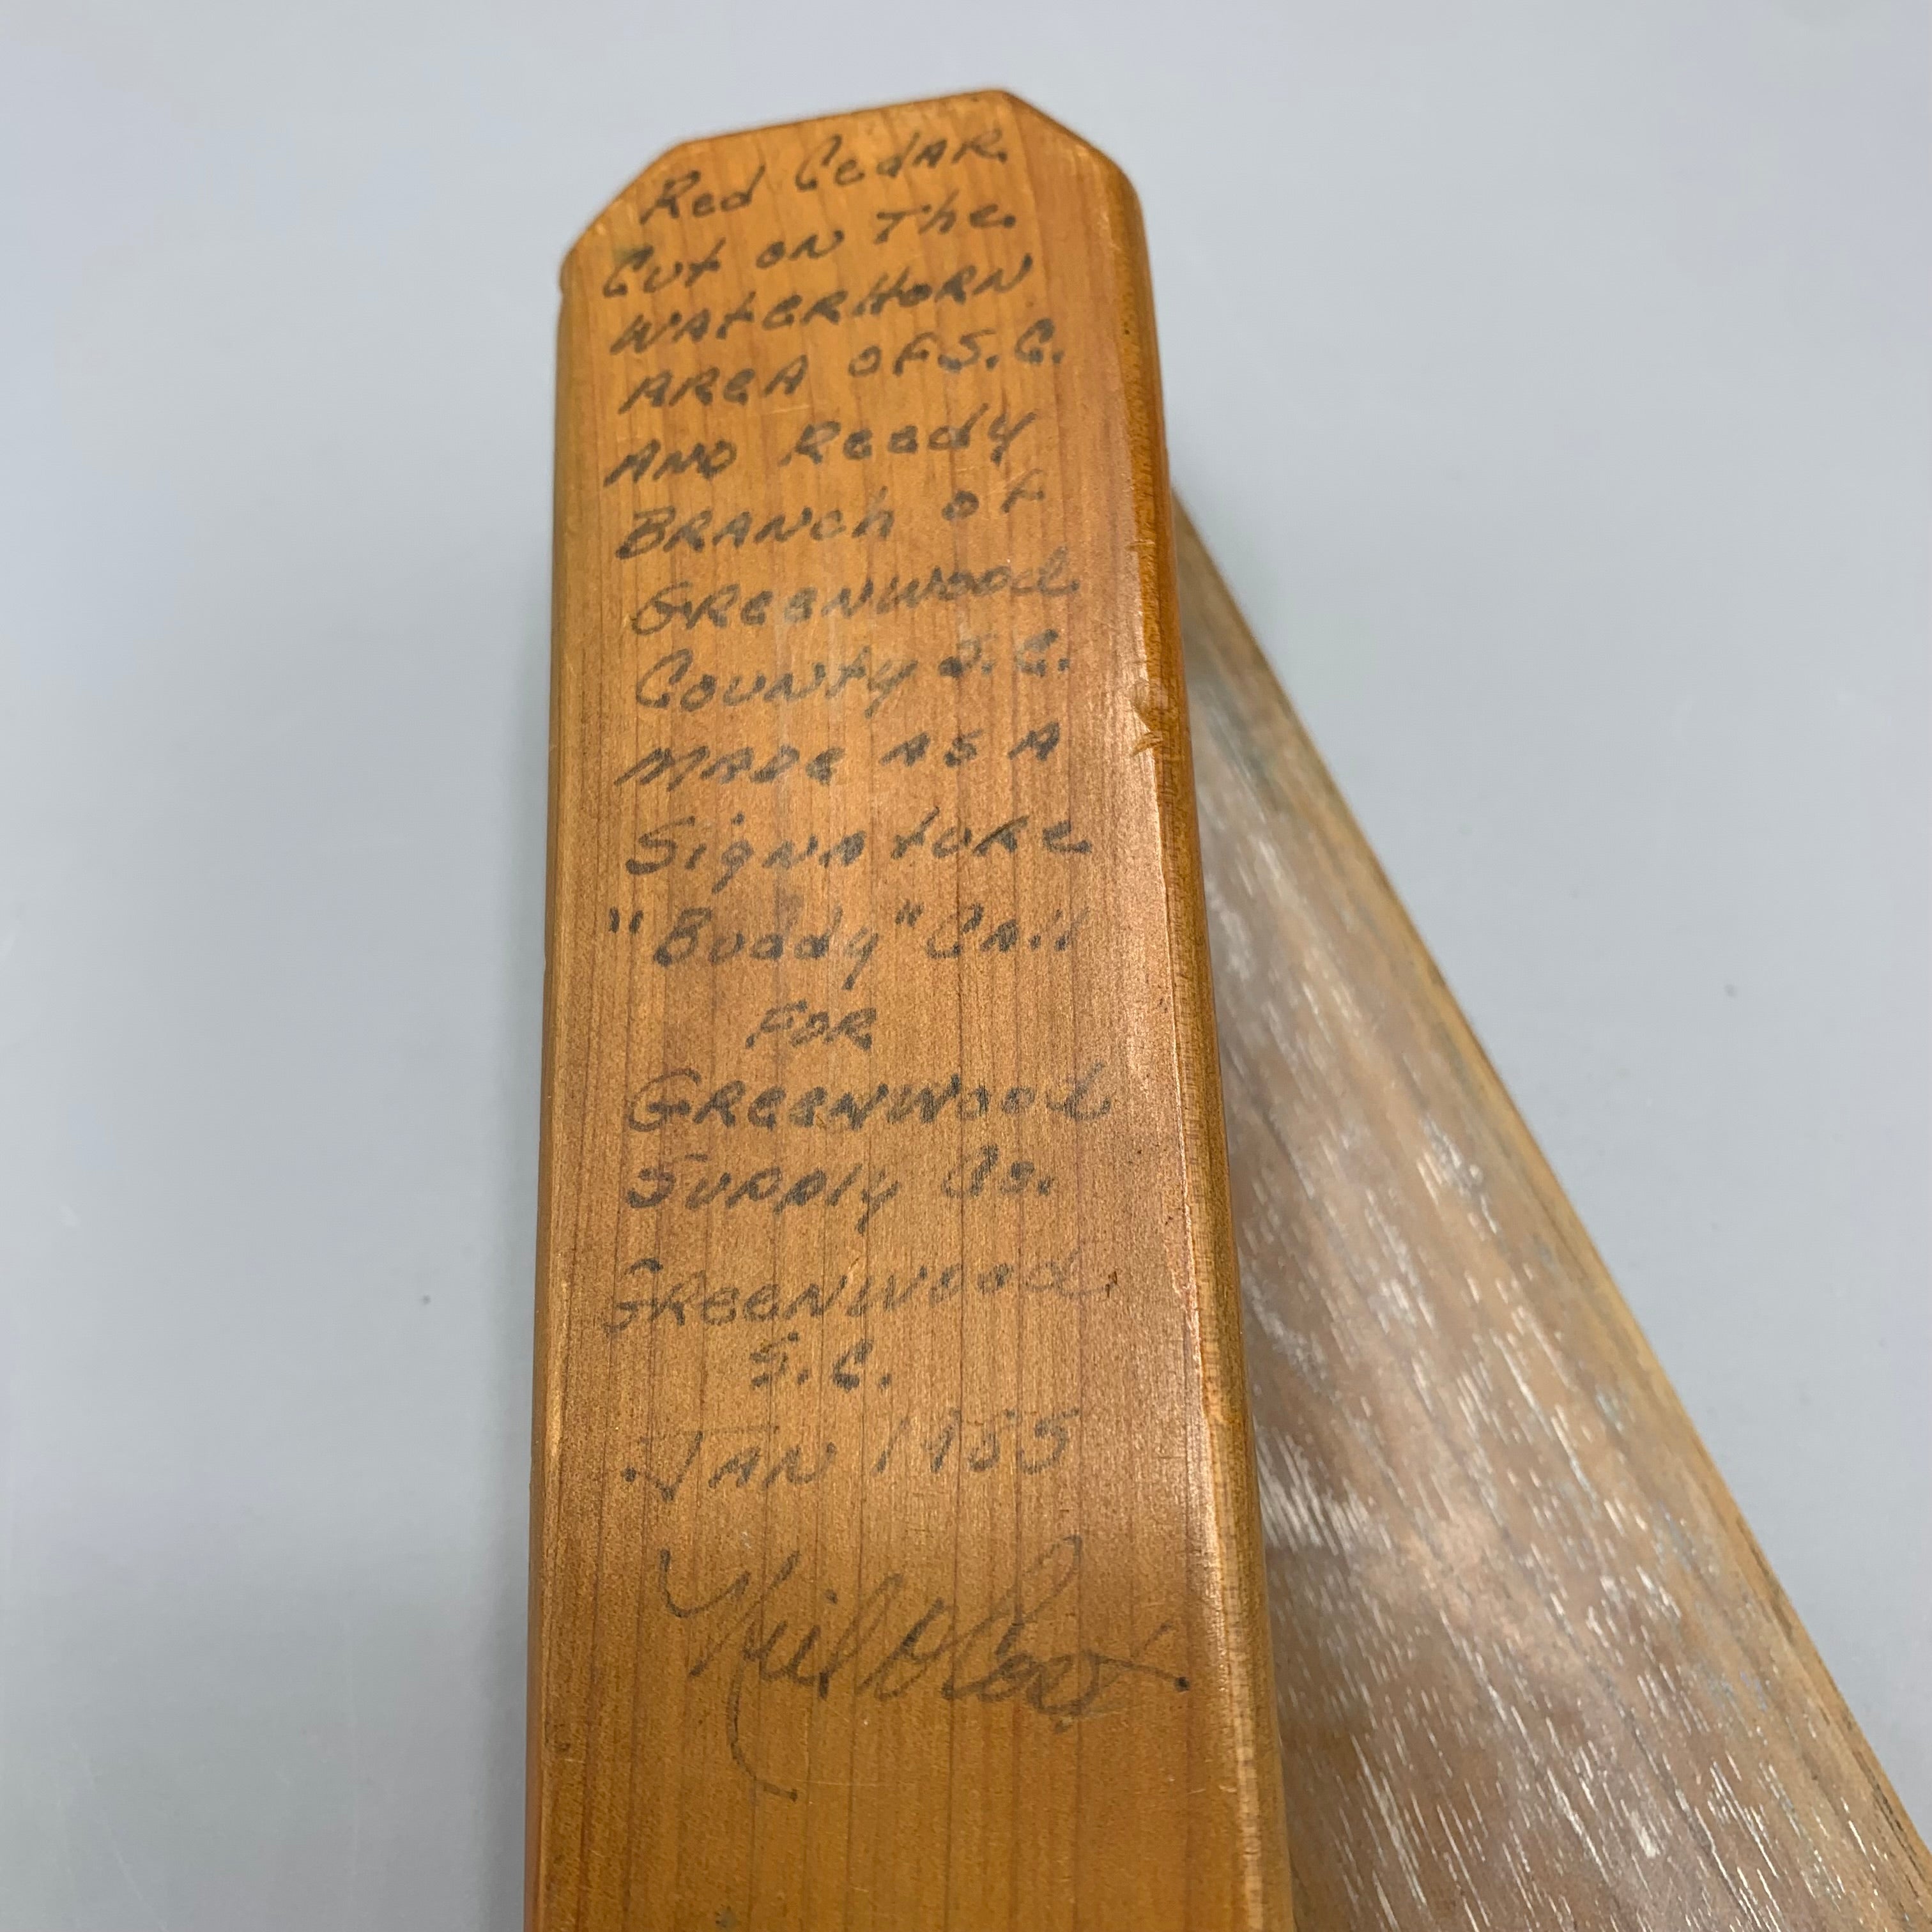 Red Cedar
Cut on the
WaterHorn
Area of S.C.
And Reedy
Branch of
Greenwood
County S.C.
Made as a
Signature
"Buddy" Call
For
Greenwood
Supply Co.
Greenwood,
S.C.
Jan 1985
Neil Cost